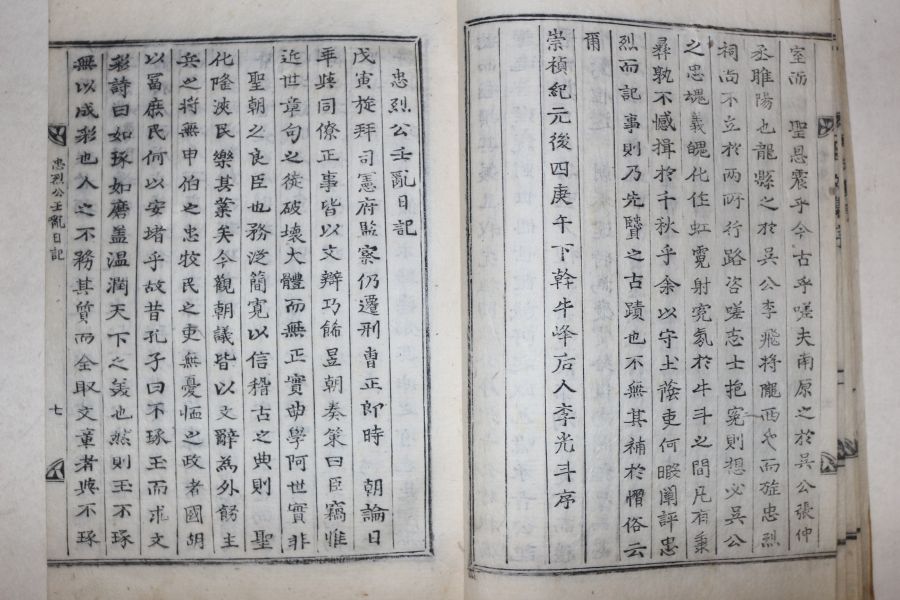 室而　聖恩震乎今古乎嗟夫南原之於吳公張仲
丞睢陽也龍縣之於吳公李飛將隴西也而旌忠烈
祠尚不立於兩所行路咨嗟志士抱寃則想必吳公
之忠塊義魄化作虹霓射寃氛於牛斗之間凡有秉
彛孰不憾揖於千秋乎余以守土蔭吏何暇闡評忠
烈而記事則乃先贒之古蹟也不無其補於懦俗云
爾
崇禎紀元後四庚午下幹牛峰后人李光斗序
忠烈公壬亂日記
戊寅旋拜司憲府監察仍遷刑曹正郎時　朝論日
乖與同僚正事皆以文辯巧餙昱朝奏策曰臣竊惟
近世章句之徒破壞大體而無正實曲學阿世實非
聖朝之良臣也務泛簡寬以信稽古之典則　聖
化隆浹民樂其業矣今觀朝議皆以文辭為外餝主
兵之將無申伯之忠牧民之吏無憂恤之政者國胡
以冨庶民何以安堵乎故昔孔子曰不琢玉而求文
彩詩曰如琢如磨盖温潤天下之美也然則玉不琢
無以成彩也人之不務其質而全取文章者與不琢
忠烈公壬亂日記
七